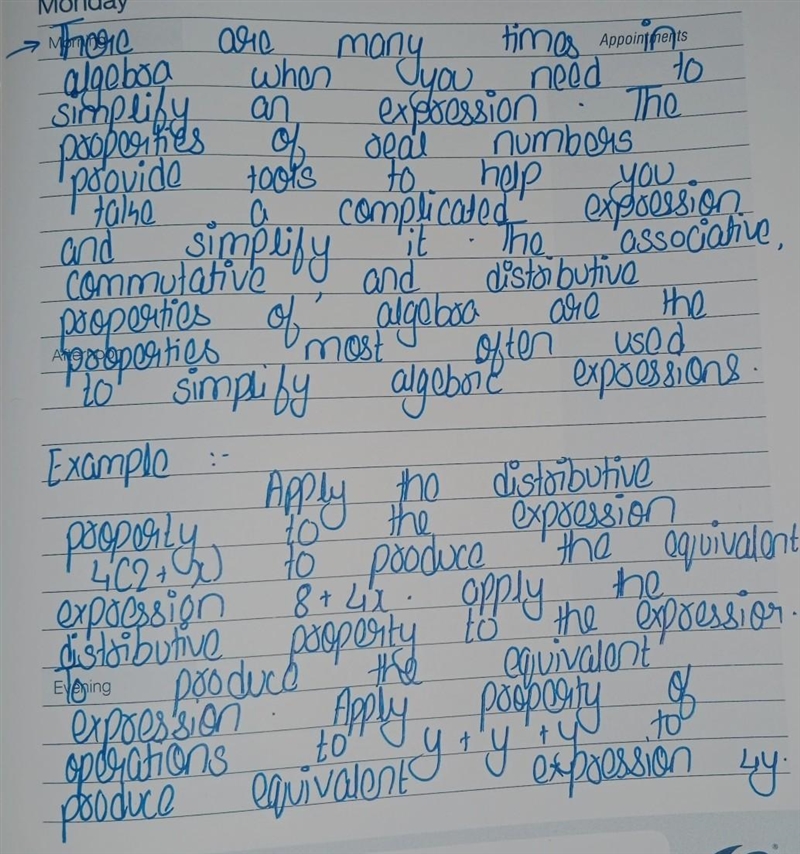 Monday
→ There are many times in Appointments
algebra when you need to
simplify an expression. The
properties of real numbers
provide tools to help you
take a complicated expression
and simplify it. The associative,
commutative, and distributive
properties of algebra are the
properties most often used
to simplify algebric expressions.
Example :-
Apply the distributive
property to the expression
4(2+x) to produce the equivalent
expression 8+4x. apply the
distributive property to the expression.
Evening To produce the equivalent
expression. Apply property of
operations to y + y + y to
produce equivalent expression 4y.